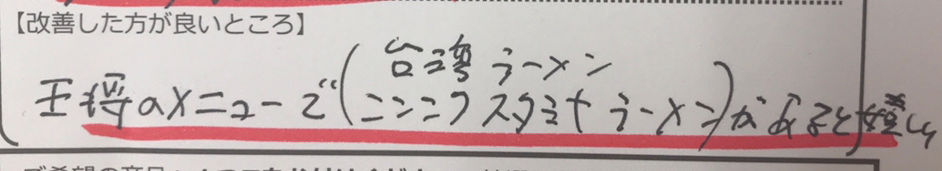 【改善した方が良いところ】
王将のメニューで(台湾ラーメン
ニンニクスタミナラーメン)があると嬉しい